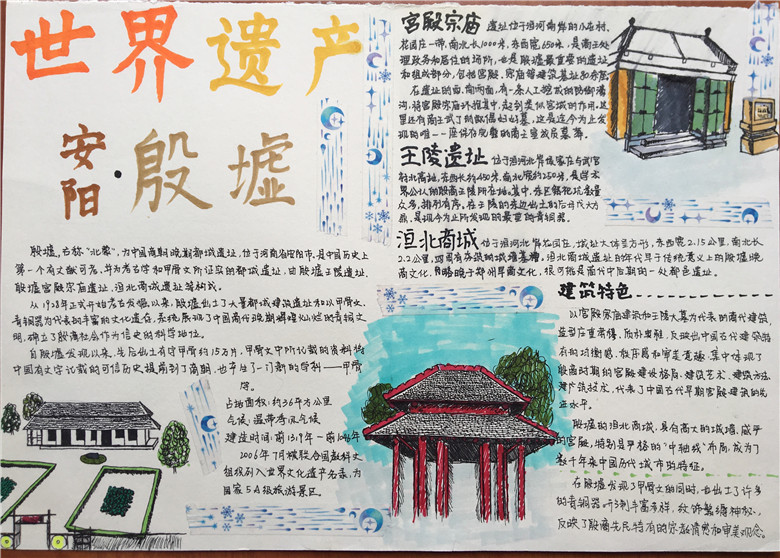 世界遗产
安阳·殷墟
殷墟，古称“北蒙”，为中国商朝晚期都城遗址，位于河南省安阳市，是中国历史上
第一个有文献可考，并为考古学和甲骨文所证实的都城遗址，由殷墟王陵遗址，
殷墟宫殿宗庙遗址，洹北商城遗址等构成。
从1928年正式开始考古发掘以来，殷墟出土了大量都城建筑遗址和以甲骨文、
青铜器为代表的丰富的文化遗存，系统展现了中国商代晚期辉煌灿烂的青铜文
明，确立了殷商社会作为信史的科学地位。
自殷墟发现以来，先后出土有字甲骨约15万片，甲骨文中所记载的资料将
中国有文字记载的可信历史提前到了商朝，也产生了一门新的学科——甲骨
学。
占地面积：约36平方公里
气候：温带季风气候
建造时间：前1319年－前1046年
2006年7月被联合国教科文
组织列入世界文化遗产名录，为
国家5A级旅游景区。
宫殿宗庙 遗址位于洹河南岸的小屯村、
花园庄一带，南北长1000米，东西宽650米，是商王处
理政务和居住的场所，也是殷墟最重要的遗址
和组成部分，包括宫殿、宗庙等建筑基址80余座
在遗址的西、南两面，有一条人工挖成的防御濠
沟，将宫殿宗庙环抱其中，起到类似宫城的作用。这
里还有商王武丁的配偶妇好墓，这是迄今为止发
现的唯一一座保存完整的商王室成员墓葬。
王陵遗址 位于洹河北岸侯家庄与武官
村北高地，东西长约450米，南北宽约250米，是学术
界公认的殷商王陵所在地。其中，东区祭祀坑数量
众多，排列有序。在王陵的东边出土的后母戊大方
鼎，是现今为止所发现的最重的青铜器。
洹北商城 位于洹河北岸花园庄，城址大体呈方形，东西宽2.15公里，南北长
2.2公里，四周有夯筑的城墙基槽，洹北商城遗址的年代早于传统意义上的殷墟晚
商文化，而略晚于郑州早商文化，很可能是商代中期的一处都邑遗址。
建筑特色
以宫殿宗庙建筑和王陵大墓为代表的商代建筑
反映出中国古代建筑特
集中体现了
殷商时期的宫殿建设格局、建筑艺术、建筑方法、
建筑技术，代表了中国古代早期宫殿建筑的先
进水平。
殷墟的洹北商城，具有高大的城墙、威严
的宫殿，特别是严格的“中轴线”布局，成为了
数千年来中国历代城市的特征。
在殷墟发现了甲骨文的同时，也出土了许多
的青铜器，形制丰富多样，纹饰繁缛神秘，
反映了殷商先民特有的宗教情感和审美观念。